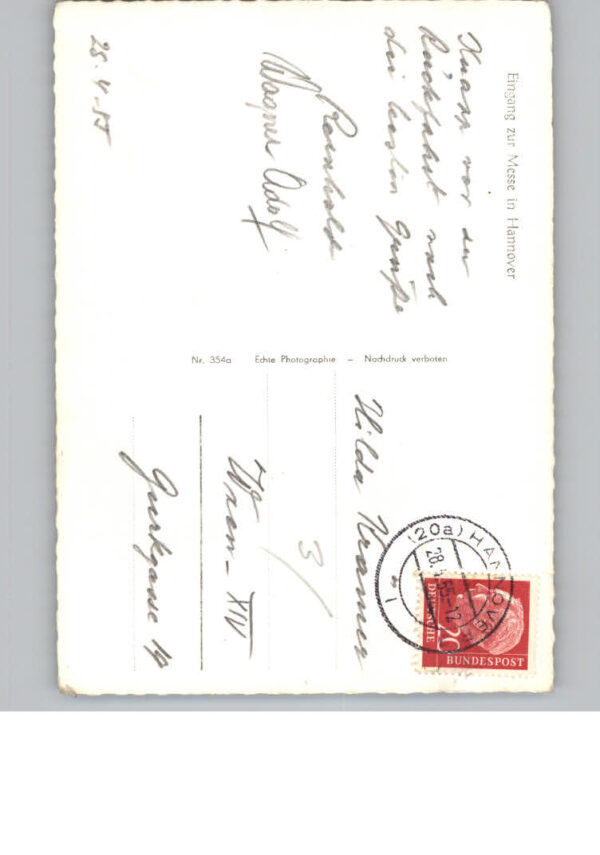 Eingang zur Messe in Hannover
Knapp vor der
Rückfahrt nach
die besten Grüße
Reinhold
Wagner Adolf
25.4.55
Nr. 354a Echte Photographie – Nachdruck verboten
(20a) HANNOVER
28. 55-12
1
DEUTSCHE
BUNDESPOST
20
Hilda Kramer
3/
Wien-XIV
Gurkgasse 19